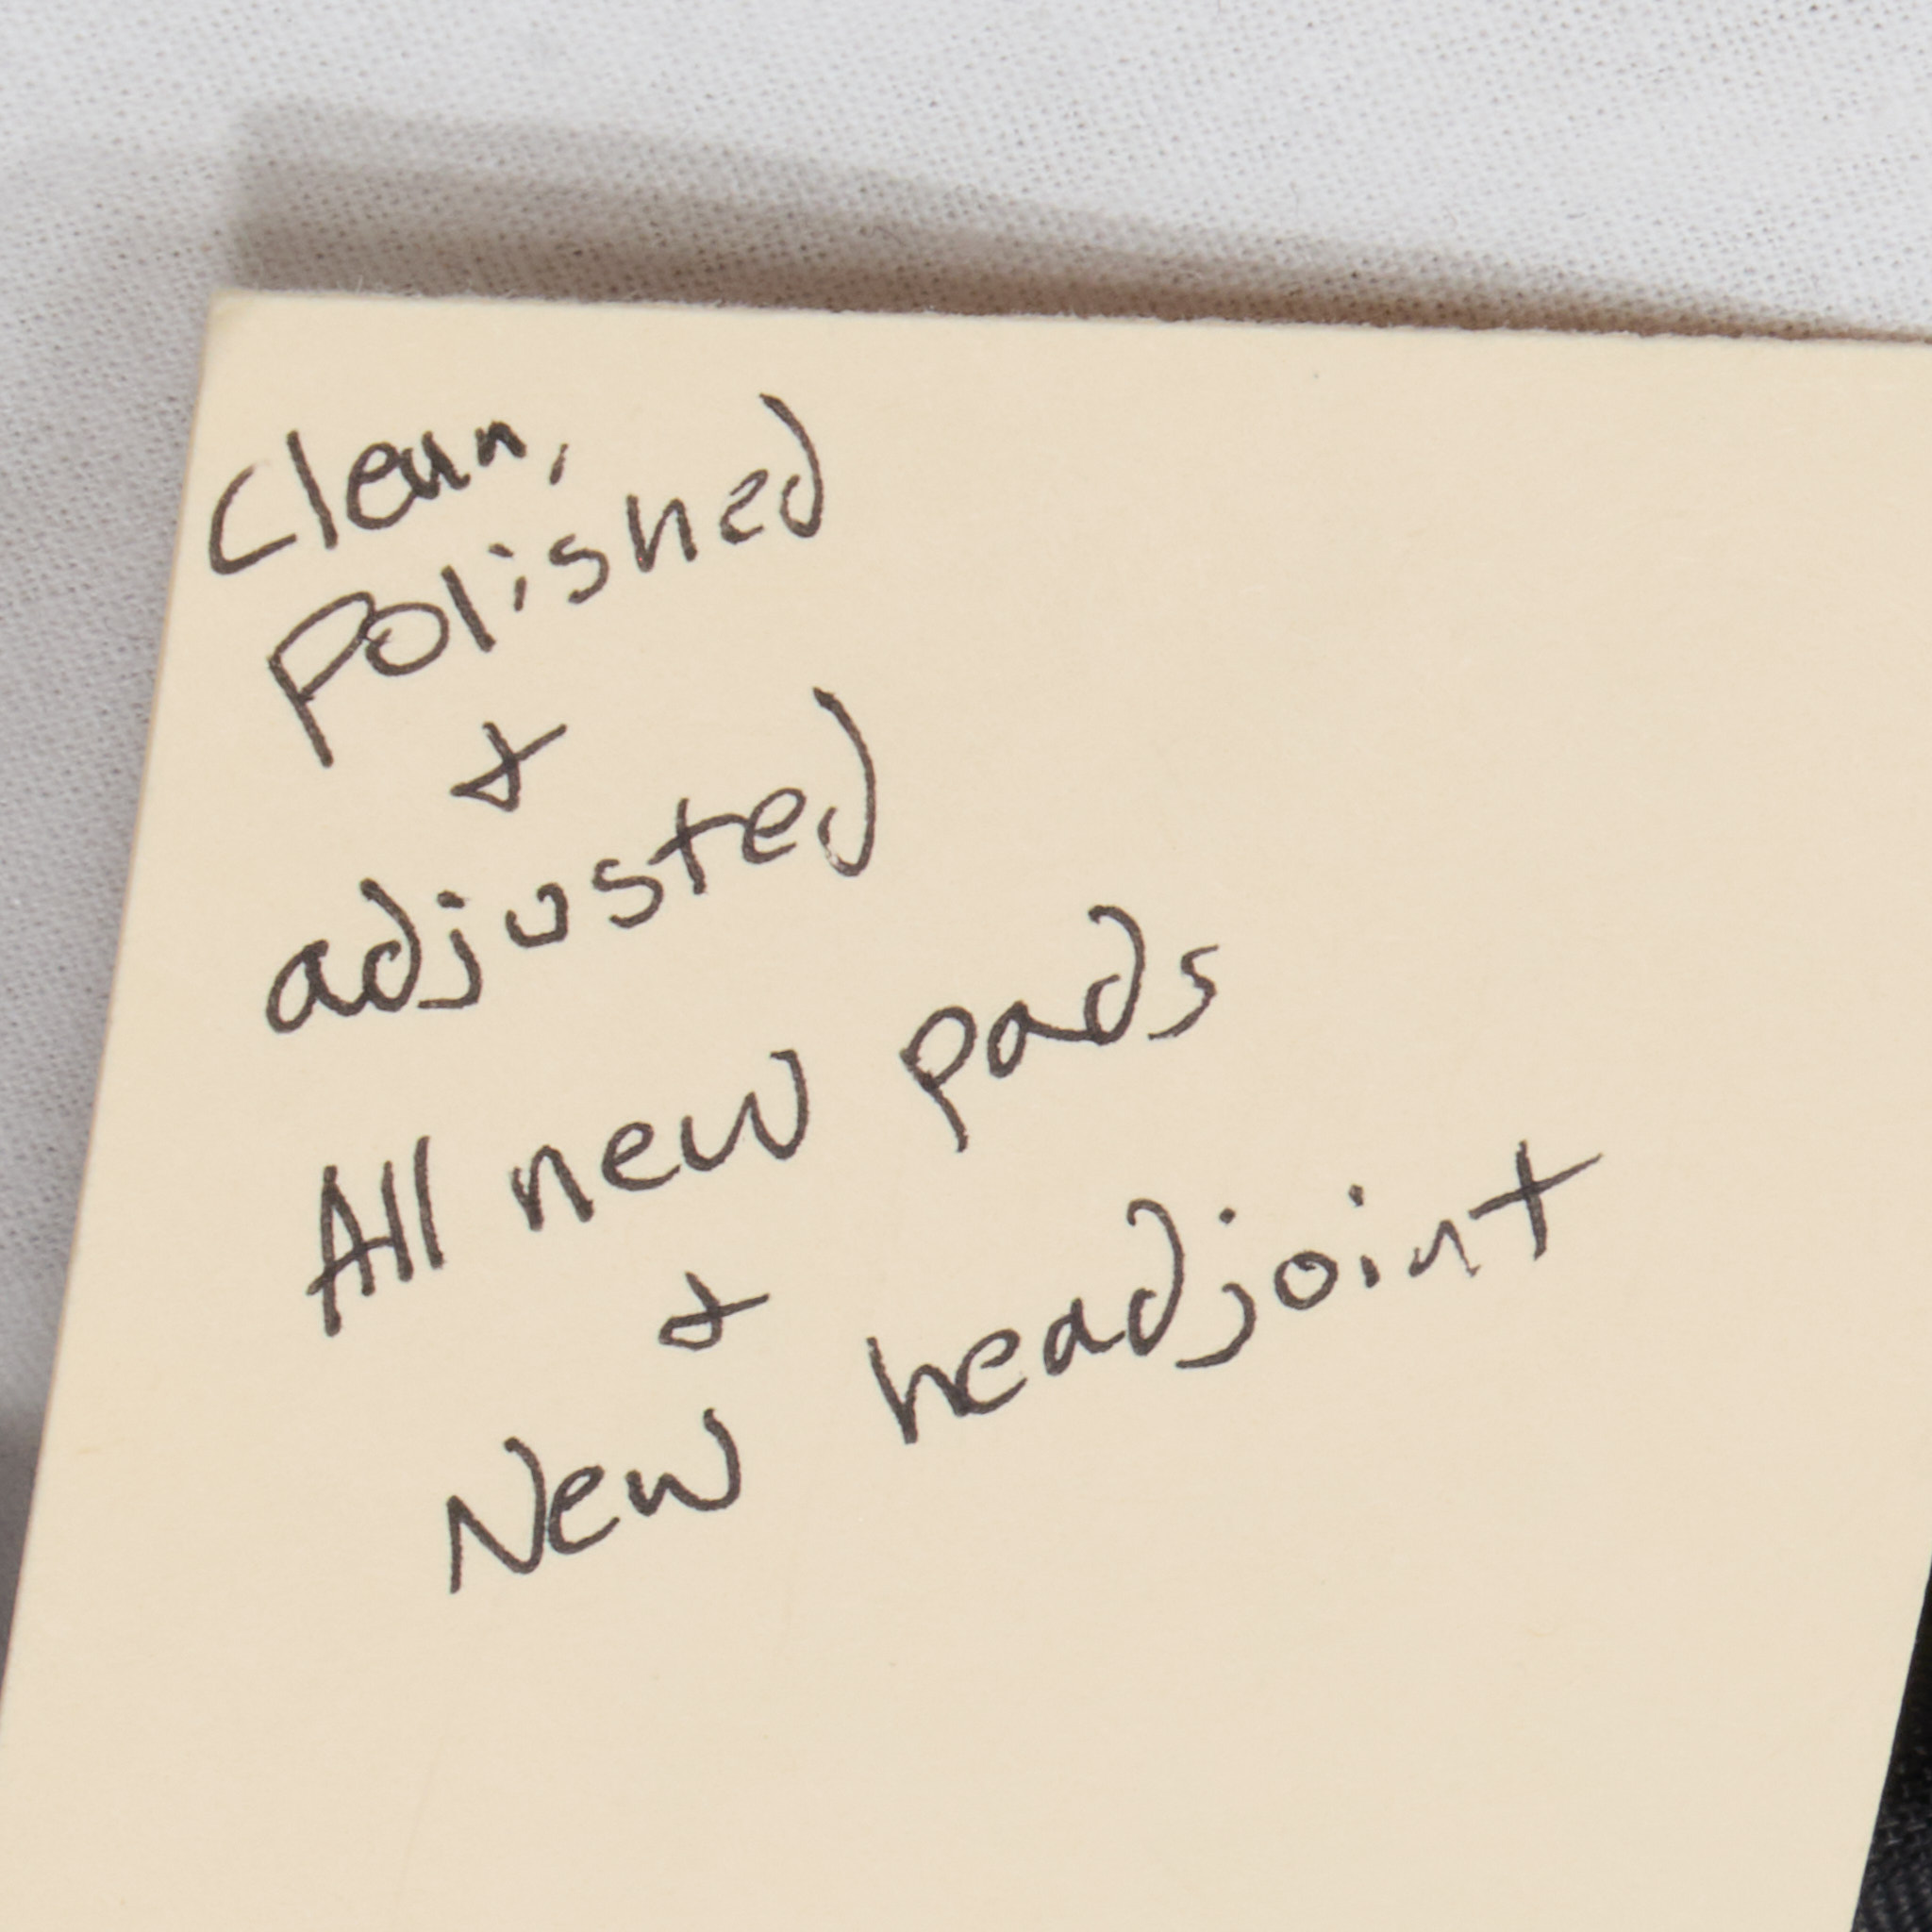 Clean,
Polished
+
adjusted
All new pads
+
New headjoint